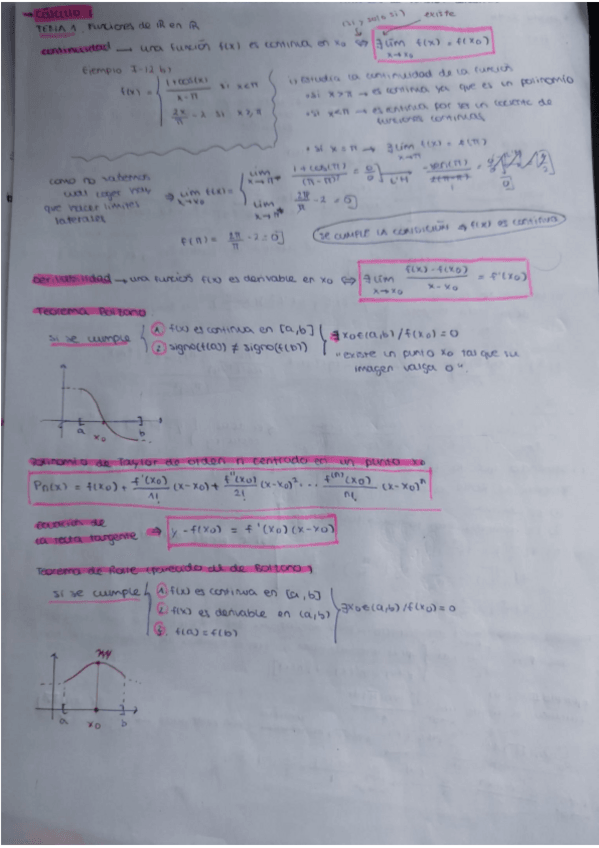 → CÁLCULO
TEMA 1. Funciones de ℝ en ℝ
(si y solo si) existe
continuidad → una función f(x) es continua en x₀ ⇔ ∃ lím x→x₀ f(x) = f(x₀)
Ejemplo I-12 b)
f(x) = { 1+cos(x) / x-π si x<π
2x/π - 2 si x≥π
Estudia la continuidad de la función
• si x>π → es continua ya que es un polinomio
• si x<π → es continua por ser un cociente de
funciones continuas
• si x=π → ∃ lím x→π f(x) = f(π)
como no sabemos
cual coger hay
que hacer límites
laterales
⇒ lím x→x₀ f(x) = { lím x→π⁻ 1+cos(π) / (π-π) = 0/0 L'H -sen(π) / 1 = 0
lím x→π⁺ 2π/π - 2 = 0
f(π) = 2π/π - 2 = 0
SE CUMPLE LA CONDICIÓN → f(x) es continua
Derivabilidad → una función f(x) es derivable en x₀ ⇔ ∃ lím x→x₀ f(x)-f(x₀) / x-x₀ = f'(x₀)
Teorema Bolzano
si se cumple { 1. f(x) es continua en [a,b]
2. signo(f(a)) ≠ signo(f(b)) } ∃x₀∈(a,b) / f(x₀)=0
"existe un punto x₀ tal que su
imagen valga 0".
a x₀ b
Polinomio de Taylor de orden n centrado en un punto x₀
Pn(x) = f(x₀) + f'(x₀)/1! (x-x₀) + f''(x₀)/2! (x-x₀)² ... f⁽ⁿ⁾(x₀)/n! (x-x₀)ⁿ
Ecuación de
la recta tangente ⇒ y - f(x₀) = f'(x₀) (x-x₀)
Teorema de Rolle (parecido al de Bolzano)
si se cumple { 1. f(x) es continua en [a,b]
2. f(x) es derivable en (a,b)
3. f(a) = f(b) } ∃x₀∈(a,b) / f(x₀)=0
a x₀ b